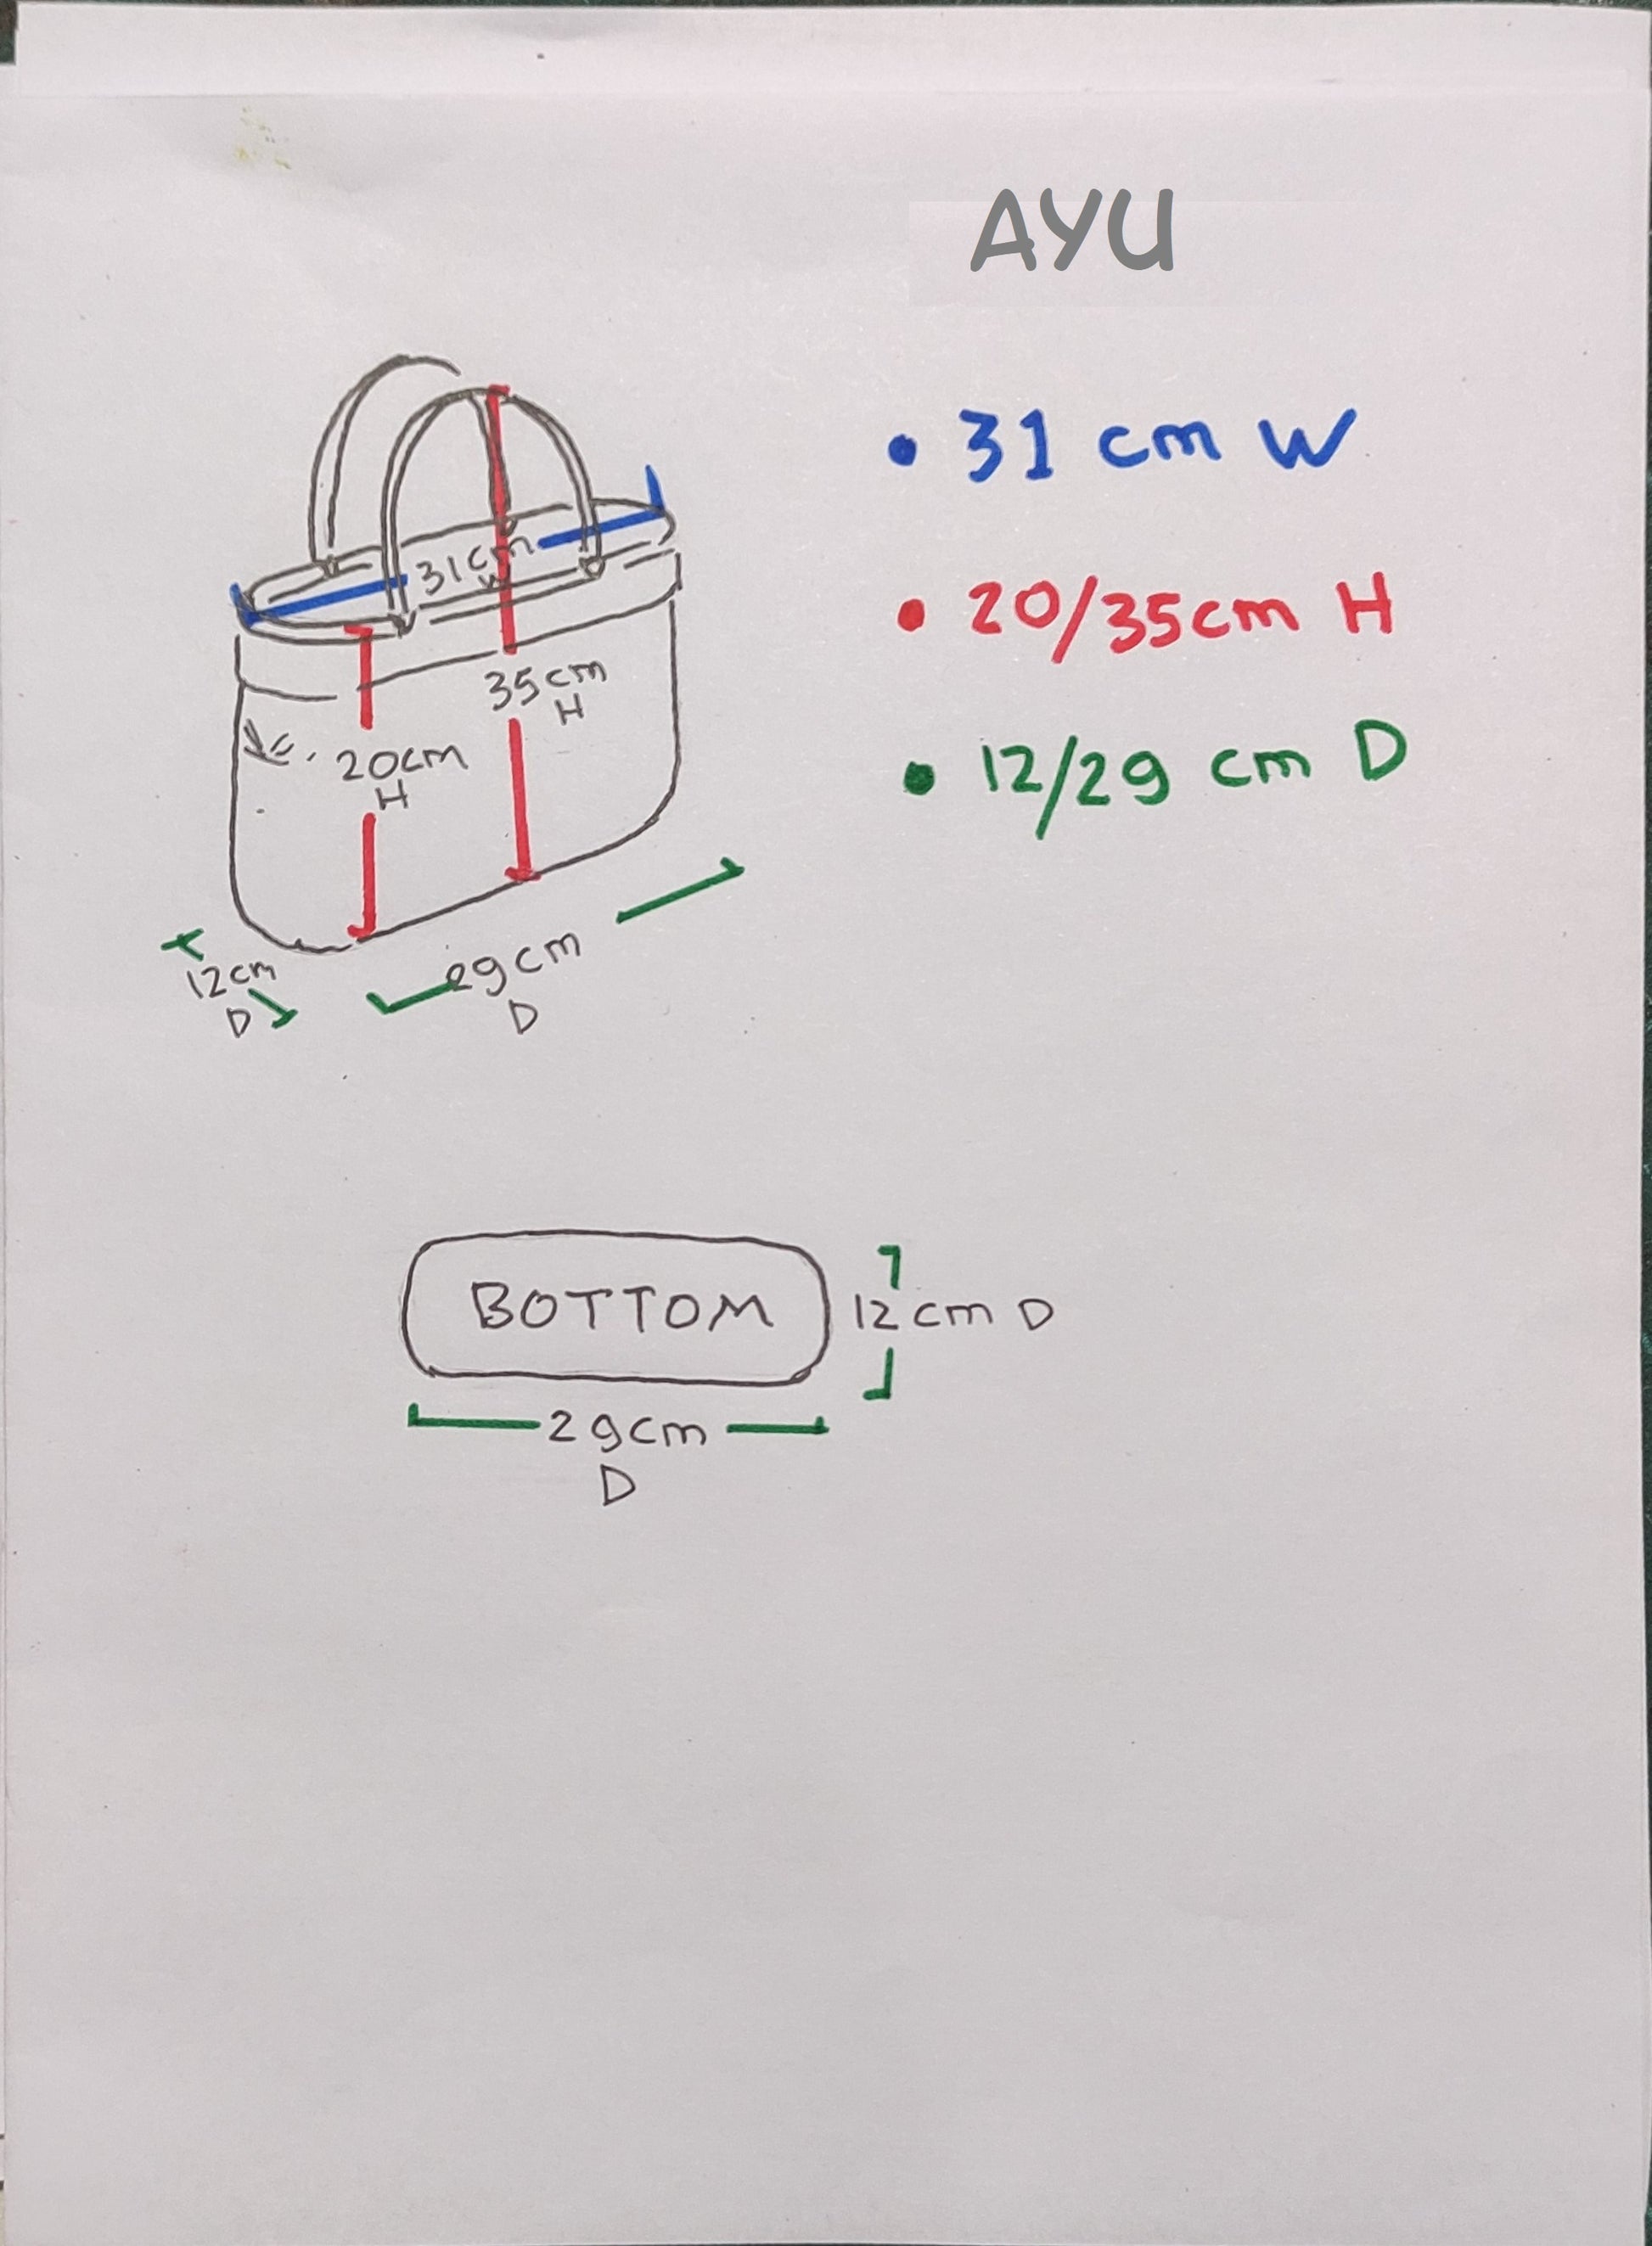 AYU
• 31 cm W
• 20/35cm H
• 12/29 cm D
31cm
W
35cm
H
20cm
H
12cm
D
29cm
D
BOTTOM
12cm D
29cm
D